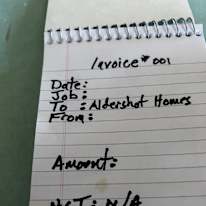 Invoice # 001
Date:
Job:
To : Aldershot Homes
From:
Amount:
HST: N/A